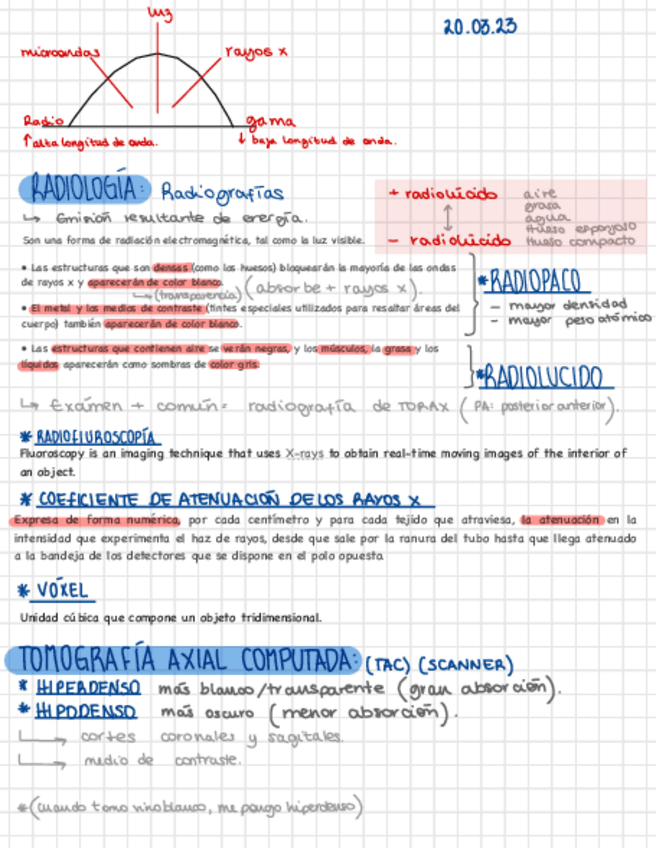 luz
20.03.23
microondas
rayos x
Radio
gama
↑ alta longitud de onda.
↓ baja longitud de onda.
RADIOLOGÍA: Radiografías
↳ Emisión resultante de energía.
Son una forma de radiación electromagnética, tal como la luz visible.
+ radiolúcido
- radiolúcido
aire
grasa
agua
Hueso esponjoso
Hueso compacto
• Las estructuras que son densas (como los huesos) bloquearán la mayoría de las ondas
de rayos x y aparecerán de color blanco.
↳ (transparencia) (absorbe + rayos x)
• El metal y los medios de contraste (tintes especiales utilizados para resaltar áreas del
cuerpo) también aparecerán de color blanco.
*RADIOPACO
- mayor densidad
- mayor peso atómico
• Las estructuras que contienen aire se verán negras, y los músculos, la grasa y los
líquidos aparecerán como sombras de color gris.
*RADIOLUCIDO
↳ Exámen + común = radiografía de TORAX (PA: posterior anterior).
* RADIOFLUROSCOPÍA
Fluoroscopy is an imaging technique that uses X-rays to obtain real-time moving images of the interior of
an object.
* COEFICIENTE DE ATENUACIÓN DE LOS RAYOS X
Expresa de forma numérica, por cada centímetro y para cada tejido que atraviesa, la atenuación en la
intensidad que experimenta el haz de rayos, desde que sale por la ranura del tubo hasta que llega atenuado
a la bandeja de los detectores que se dispone en el polo opuesto.
* VÓXEL
Unidad cúbica que compone un objeto tridimensional.
TOMOGRAFÍA AXIAL COMPUTADA: (TAC) (SCANNER)
* HIPERDENSO más blanco/transparente (gran absorción).
* HIPODENSO más oscuro (menor absorción).
↳ cortes coronales y sagitales.
↳ medio de contraste.
*(cuando tomo vino blanco, me pongo hiperdenso)